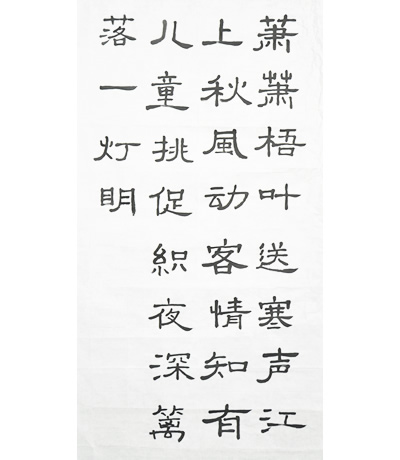 萧萧梧叶送寒声江
上秋风动客情知有
儿童挑促织夜深篱
落一灯明